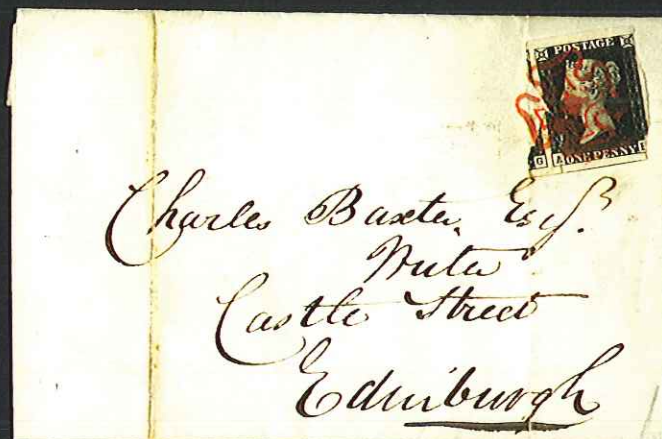 POSTAGE
G ONE PENNY I
Charles Baxter Esqr.
Writer
Castle Street
Edinburgh